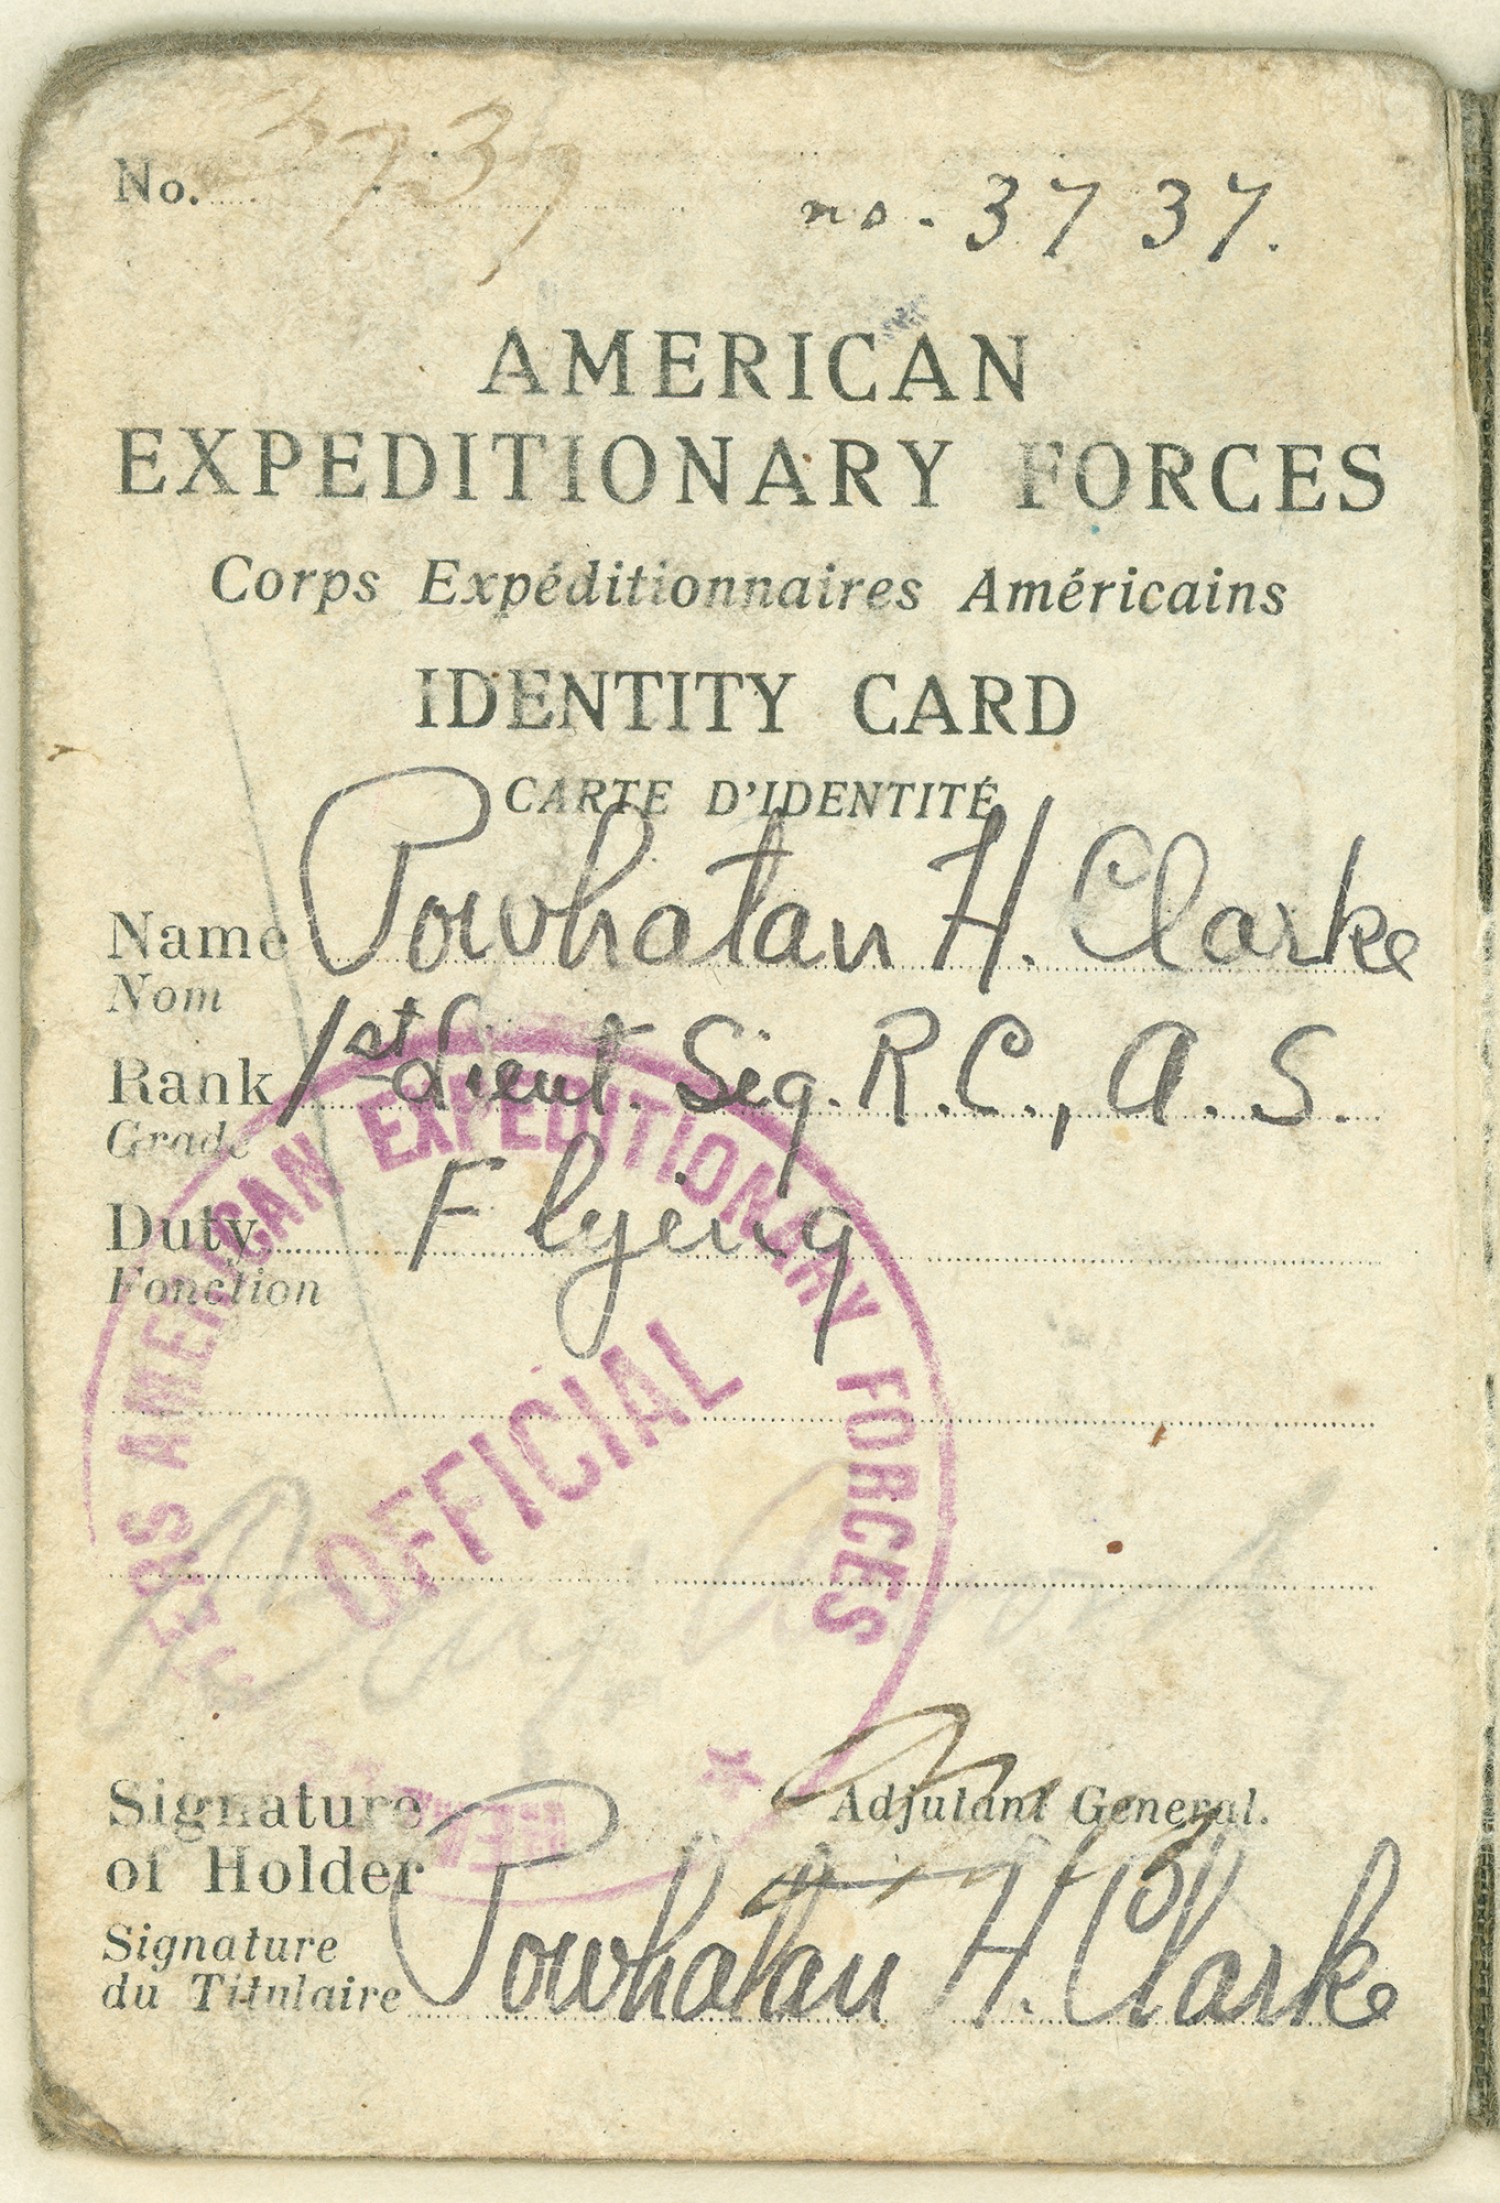 No. 3737 no. 3737.
AMERICAN
EXPEDITIONARY FORCES
Corps Expéditionnaires Américains
IDENTITY CARD
CARTE D'IDENTITÉ
Name Powhatan H. Clarke
Nom
Rank 1st Lieut. Sig. R.C., A. S.
Grade
Duty Flying
Fonction
AMERICAN EXPEDITIONARY FORCES
OFFICIAL
Adjutant General.
Signature
of Holder Powhatan H. Clarke
Signature
du Titulaire